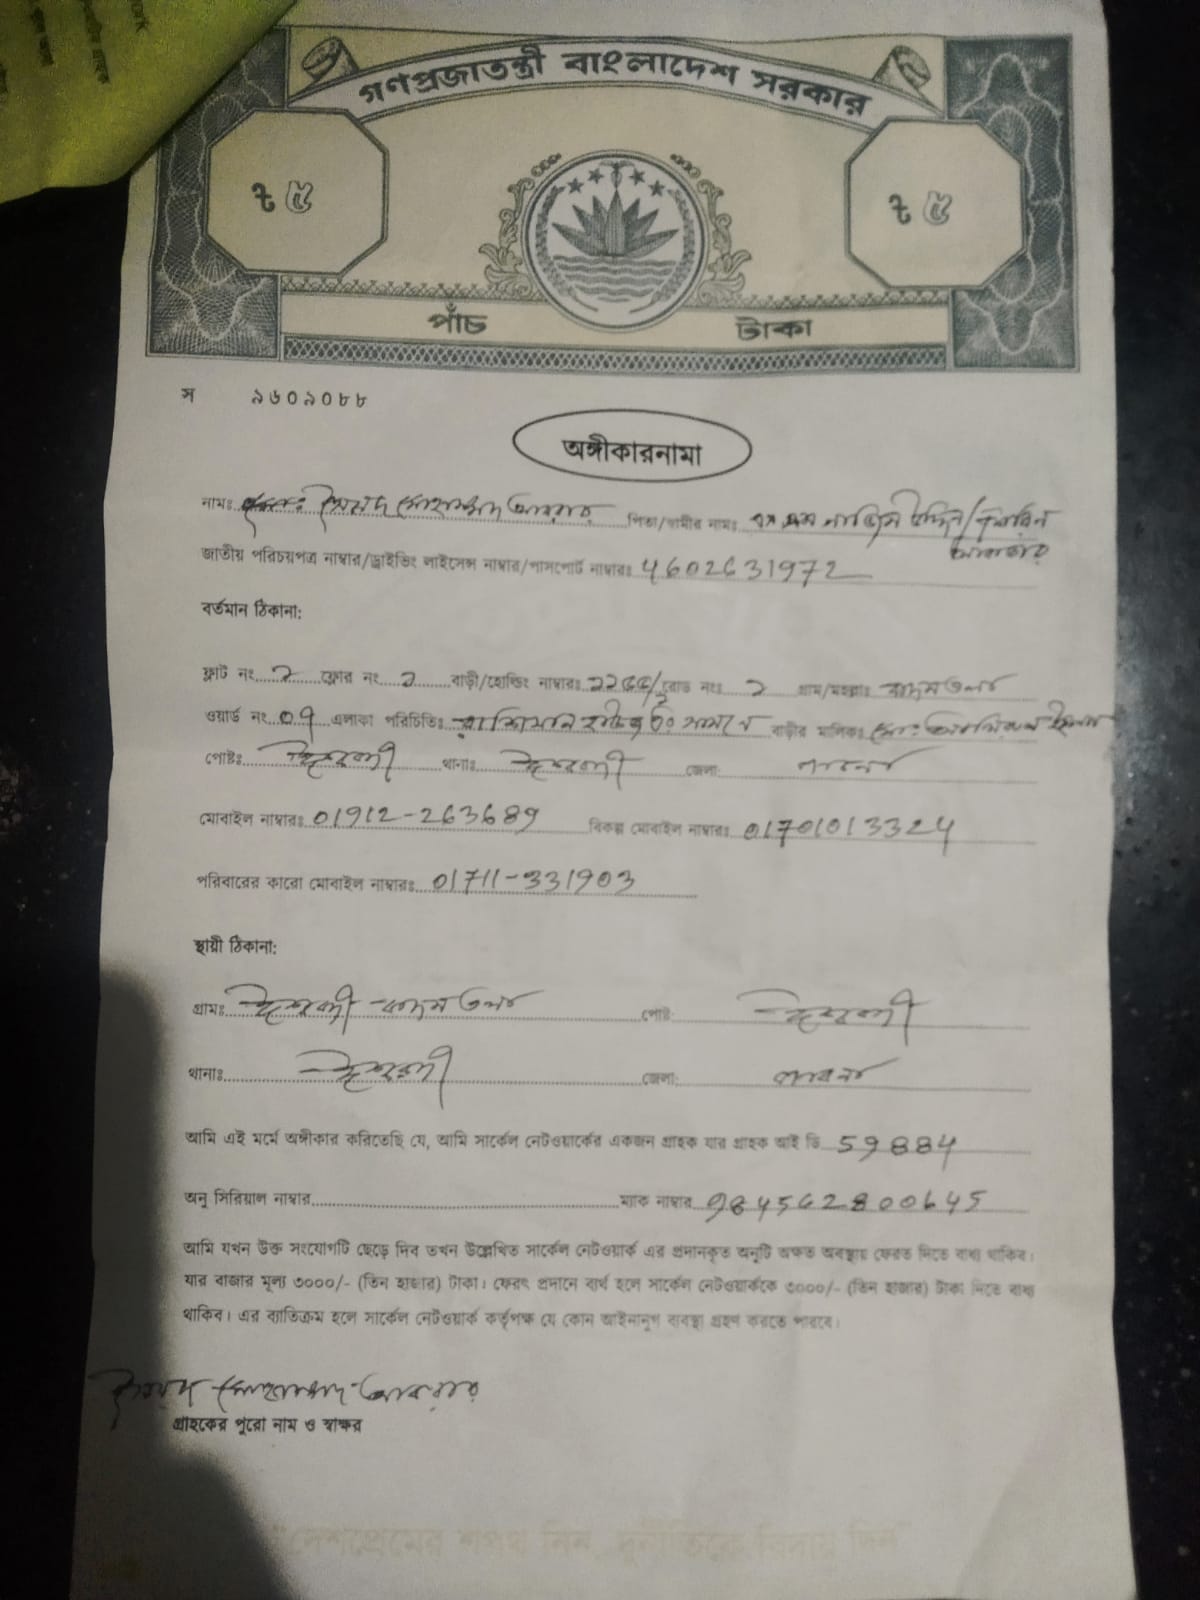 গণপ্রজাতন্ত্রী বাংলাদেশ সরকার
৳ ৫ ৳ ৫
পাঁচ টাকা
স ৯৬০৯০৮৮
অঙ্গীকারনামা
নামঃ সৈয়দ মোহাম্মদ আবরার পিতা/স্বামীর নামঃ এস এম নাজিম উদ্দিন/
জাতীয় পরিচয়পত্র নাম্বার/ড্রাইভিং লাইসেন্স নাম্বার/পাসপোর্ট নাম্বারঃ 4602631972
বর্তমান ঠিকানা:
ফ্লাট নং ২ ফ্লোর নং ১ বাড়ী/হোল্ডিং নাম্বারঃ রোড নংঃ ২ গ্রাম/মহল্লাঃ
ওয়ার্ড নং 07 এলাকা পরিচিতিঃ সামনে বাড়ীর মালিকঃ মো:
পোষ্টঃ ঈশ্বরদী থানাঃ ঈশ্বরদী জেলা: পাবনা
মোবাইল নাম্বারঃ 01912-263689 বিকল্প মোবাইল নাম্বারঃ 01701013324
পরিবারের কারো মোবাইল নাম্বারঃ 01711-331903
স্থায়ী ঠিকানা:
গ্রামঃ ঈশ্বরদী পোষ্ট: ঈশ্বরদী
থানাঃ ঈশ্বরদী জেলা: পাবনা
আমি এই মর্মে অঙ্গীকার করিতেছি যে, আমি সার্কেল নেটওয়ার্কের একজন গ্রাহক যার গ্রাহক আই ডি 59884
অনু সিরিয়াল নাম্বার ম্যাক নাম্বার 984562800645
আমি যখন উক্ত সংযোগটি ছেড়ে দিব তখন উল্লেখিত সার্কেল নেটওয়ার্ক এর প্রদানকৃত অনুটি অক্ষত অবস্থায় ফেরত দিতে বাধ্য থাকিব।
যার বাজার মূল্য ৩০০০/- (তিন হাজার) টাকা। ফেরৎ প্রদানে ব্যর্থ হলে সার্কেল নেটওয়ার্ককে ৩০০০/- (তিন হাজার) টাকা দিতে বাধ্য
থাকিব। এর ব্যাতিক্রম হলে সার্কেল নেটওয়ার্ক কর্তৃপক্ষ যে কোন আইনানুগ ব্যবস্থা গ্রহণ করতে পারবে।
সৈয়দ মোহাম্মদ আবরার
গ্রাহকের পুরো নাম ও স্বাক্ষর
"দেশপ্রেমের শপথ নিন, দুর্নীতিকে বিদায় দিন"